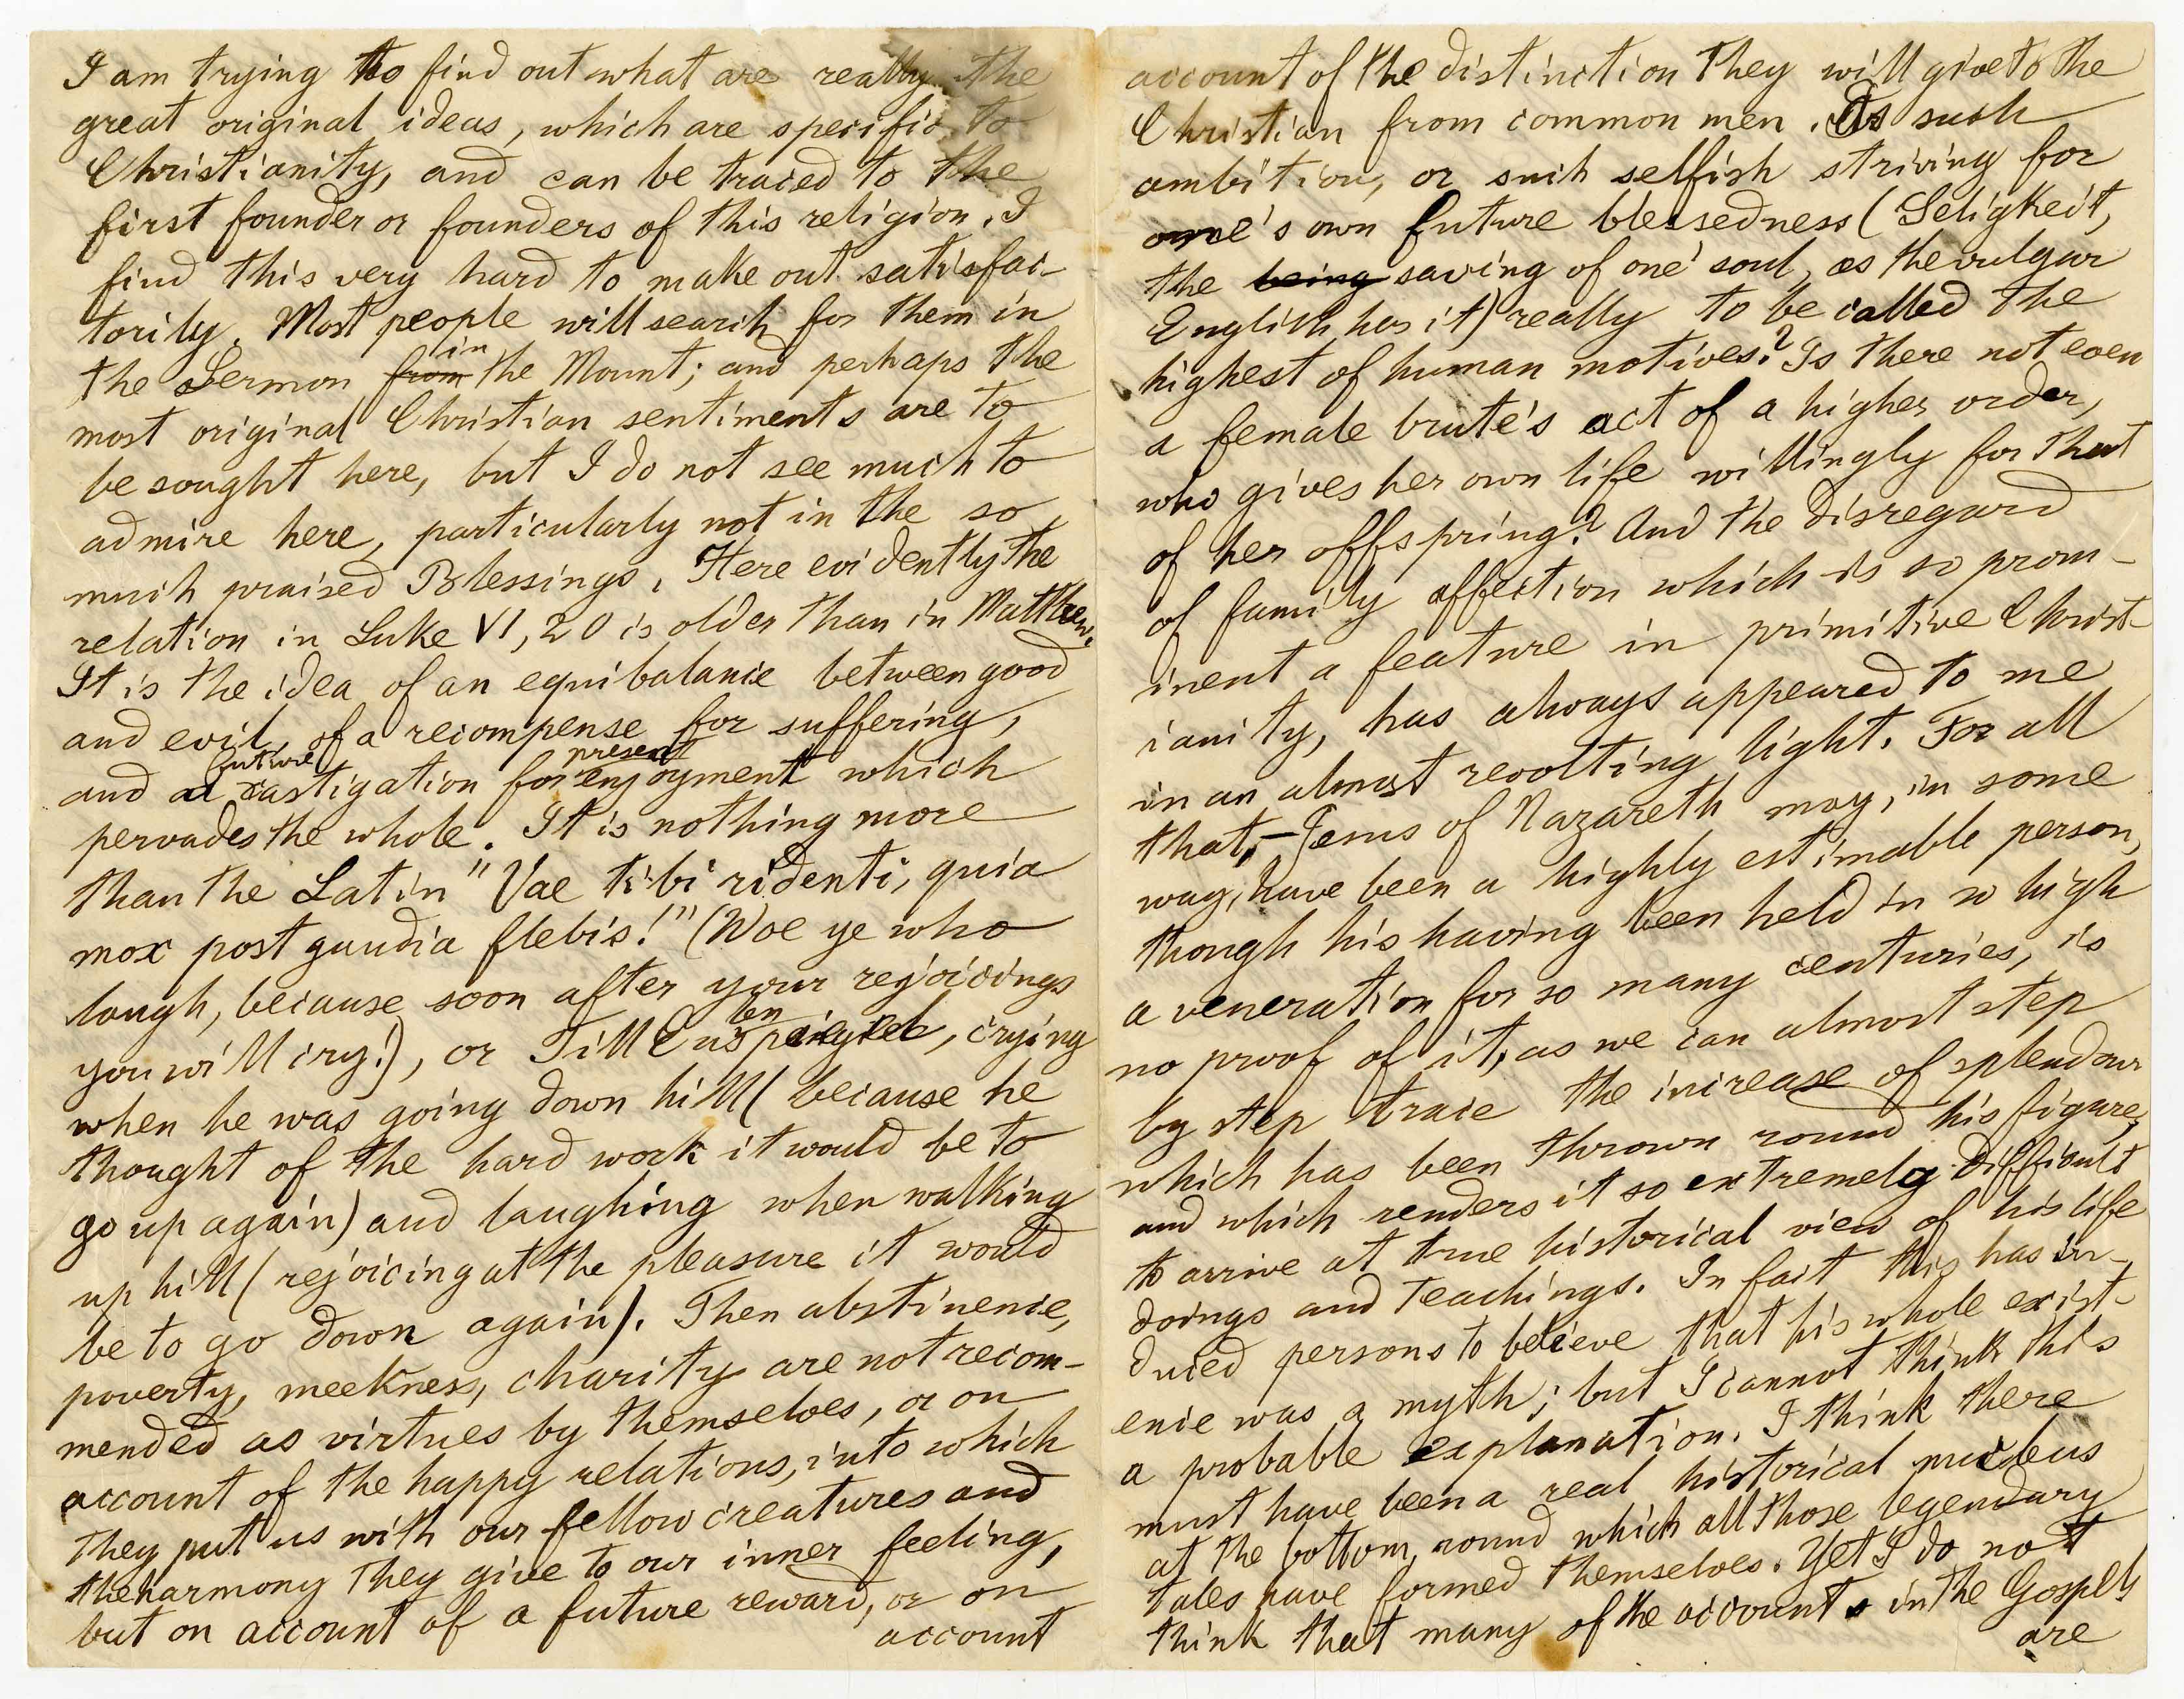 I am trying to find out what are really the
great original ideas, which are specific to
Christianity, and can be traced to the
first founder or founders of this religion. I
find this very hard to make out satisfac-
torily. Most people will search for them in
the Sermon from in the Mount; and perhaps the
most original Christian sentiments are to
be sought here, but I do not see much to
admire here, particularly not in the so
much praised Blessings. Here evidently the
relation in Luke VI, 20 is older than in Matthew.
It is the idea of an equibalance between good
and evil, of a recompense for suffering,
and a future castigation for present enjoyment which
pervades the whole. It is nothing more
than the Latin "Vae tibi ridenti, quia
mox post gaudia flebis!" (Woe ye who
laugh, because soon after your rejoicings
you will cry!), or Till Eulenspiegel, crying
when he was going down hill (because he
thought of the hard work it would be to
go up again) and laughing when walking
up hill (rejoicing at the pleasure it would
be to go down again). Then abstinence,
poverty, meekness, charity are not recom-
mended as virtues by themselves, or on
account of the happy relations, into which
they put us with our fellow creatures and
the harmony they give to our inner feeling,
but on account of a future reward, or on
account
account of the distinction they will give to the
Christian from common men. Is such
ambition, or such selfish striving for
one's own future blessedness (Seligkeit,
the being saving of one' soul, as the vulgar
English has it) really to be called the
highest of human motives? Is there not even
a female brute's act of a higher order,
who gives her own life willingly for that
of her offspring? And the disregard
of family affection which is so prom-
inent a feature in primitive Christ-
ianity, has always appeared to me
in an almost revolting light. For all
that, – Jesus of Nazareth may, in some
way, have been a highly estimable person,
though his having been held in so high
a veneration for so many centuries, is
no proof of it, as we can almost step
by step trace the increase of splendour
which has been thrown round his figure,
and which renders it so extremely difficult
to arrive at true historical view of his life
doings and teachings. In fact this has in-
duced persons to believe that his whole exist-
ence was a myth; but I cannot think this
a probable explanation. I think there
must have been a real historical nucleus
at the bottom, round which all those legendary
tales have formed themselves. Yet I do not
think that many of the accounts in the Gospels
are